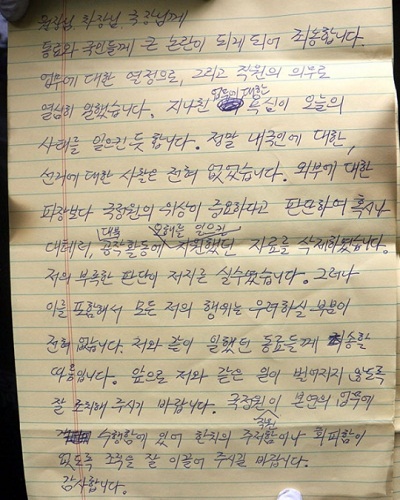 원장님, 차장님, 국장님께
동료와 국민들께 큰 논란이 되게 되어 죄송합니다.
업무에 대한 열정으로, 그리고 직원의 의무로
열심히 일했습니다. 지나친 업무에 대한 욕심이 오늘의
사태를 일으킨 듯 합니다. 정말 내국인에 대한,
선거에 대한 사찰은 전혀 없었습니다. 외부에 대한
파장보다 국정원의 위상이 중요하다고 판단하여 혹시나
대테러, 대북 공작활동에 오해를 일으킨 지원했던 자료를 삭제하였습니다.
저의 부족한 판단이 저지른 실수였습니다. 그러나
이를 포함해서 모든 저의 행위는 우려하실 부분이
전혀 없습니다. 저와 같이 일했던 동료들께 죄송할
따름입니다. 앞으로 저와 같은 일이 벌어지지 않도록
잘 조치해 주시기 바랍니다. 국정원이 본연의 업무에
수행함에 있어 직원 한치의 주저함이나 회피함이
없도록 조직을 잘 이끌어 주시길 바랍니다.
감사합니다.